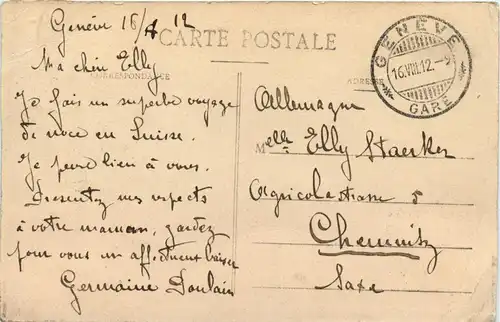 Genève 16/8 12
CARTE POSTALE
Ma chère Elly
CORRESPONDANCE
ADRESSE
Je fais un superbe voyage
de noce en Suisse.
Je pense bien à vous.
Presentez mes respects
à votre maman, gardez
pour vous un affectueux baiser
Germaine Doulain
GENÈVE
16.VIII.12.
GARE
Allemagne
Melle Elly Staerker
Agricolastrasse 5
Chemnitz
Saxe